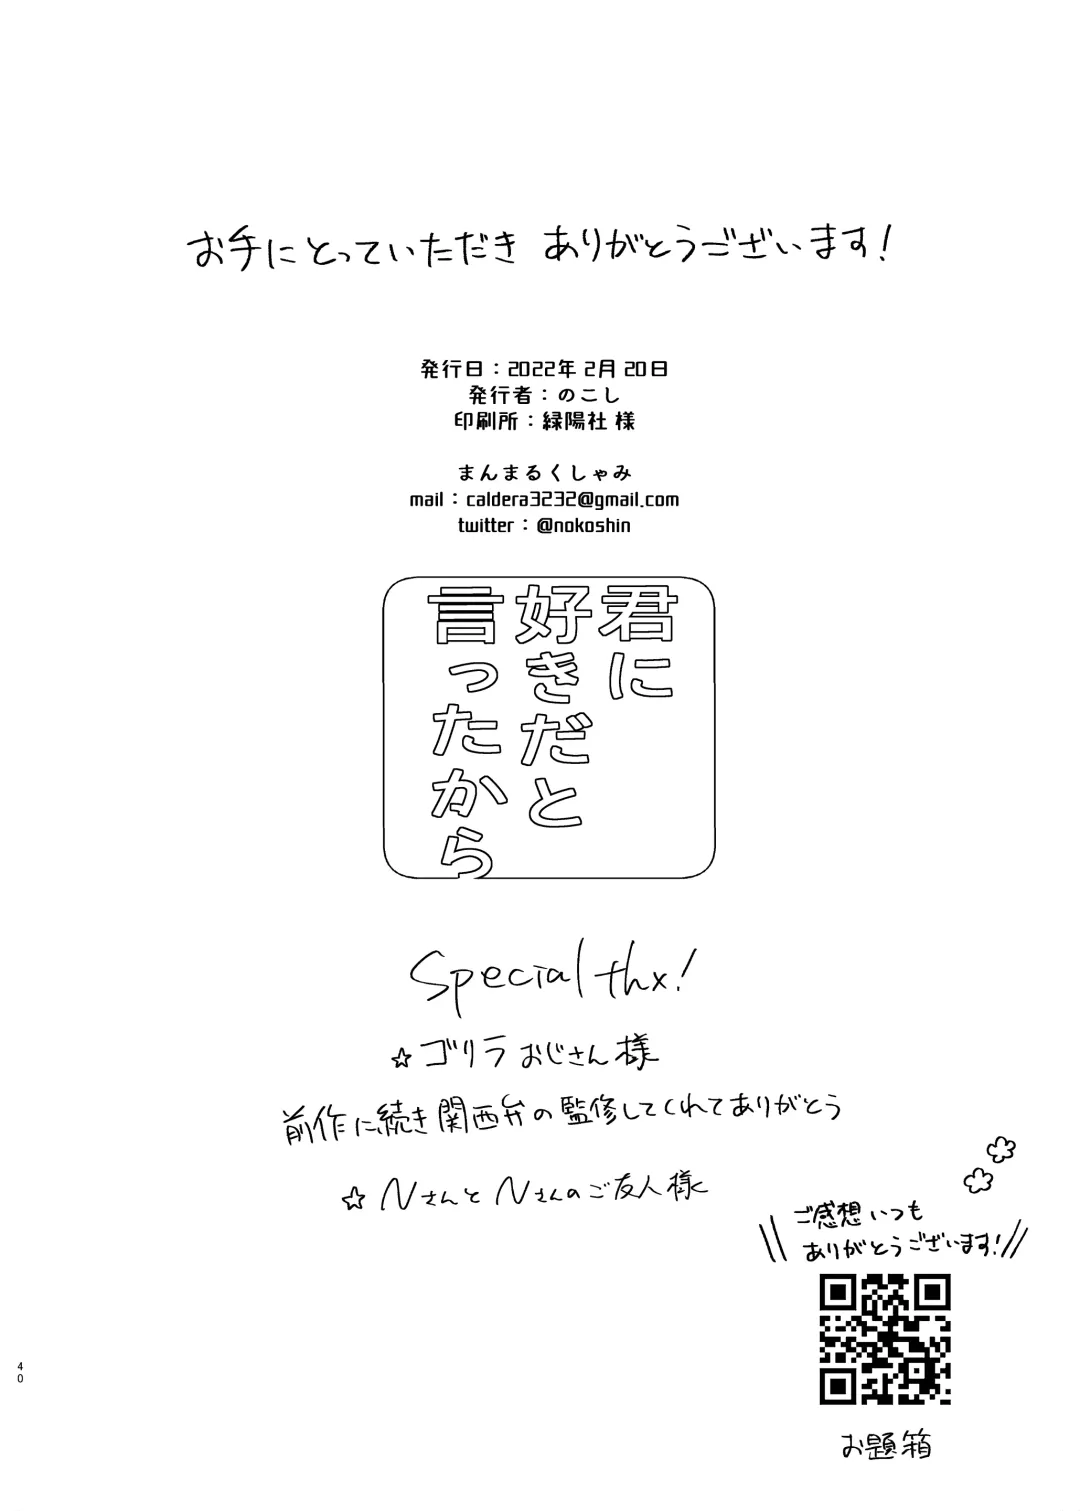 お手にとっていただき ありがとうございます!
発行日：2022年 2月 20日
発行者：のこし
印刷所：緑陽社 様
まんまるくしゃみ
mail：caldera3232@gmail.com
twitter：@nokoshin
君に
好きだと
言ったから
Special thx!
☆ゴリラおじさん様
前作に続き関西弁の監修してくれてありがとう
☆NさんとNさんのご友人様
ご感想いつも
ありがとうございます!
お題箱
40